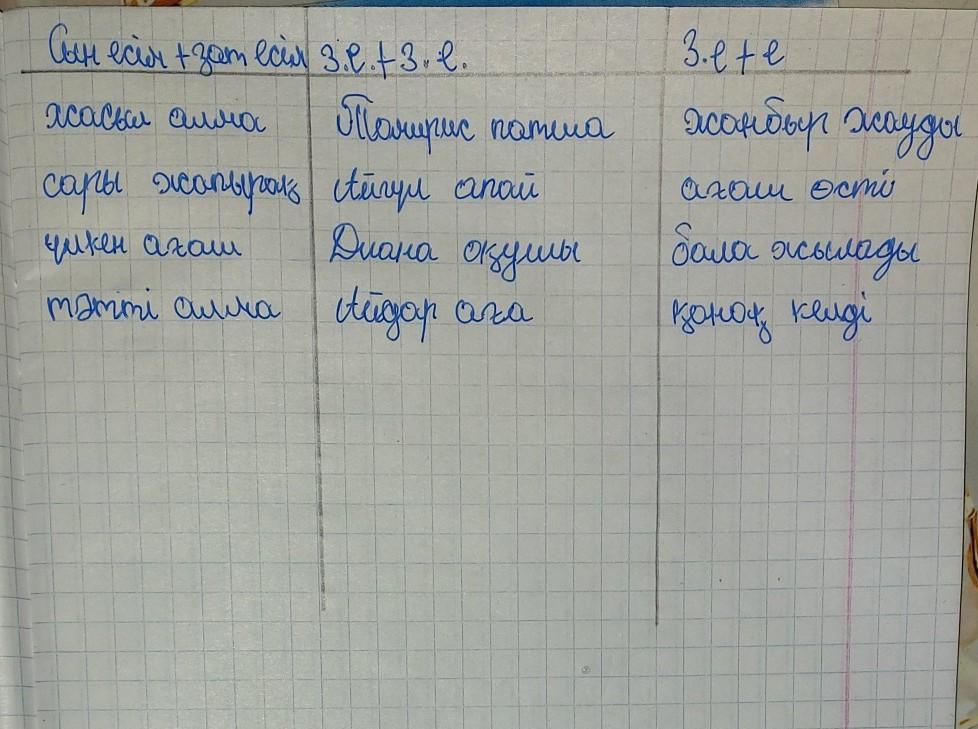 Сын есім + зат есім З.е. + З.е. З.е + е
жасыл алма Томирис патша жаңбыр жауды
сары жапырақ Айгүл апай ағаш өсті
үлкен ағаш Диана оқушы бала жылады
тәтті алма Айдар аға қонақ келді